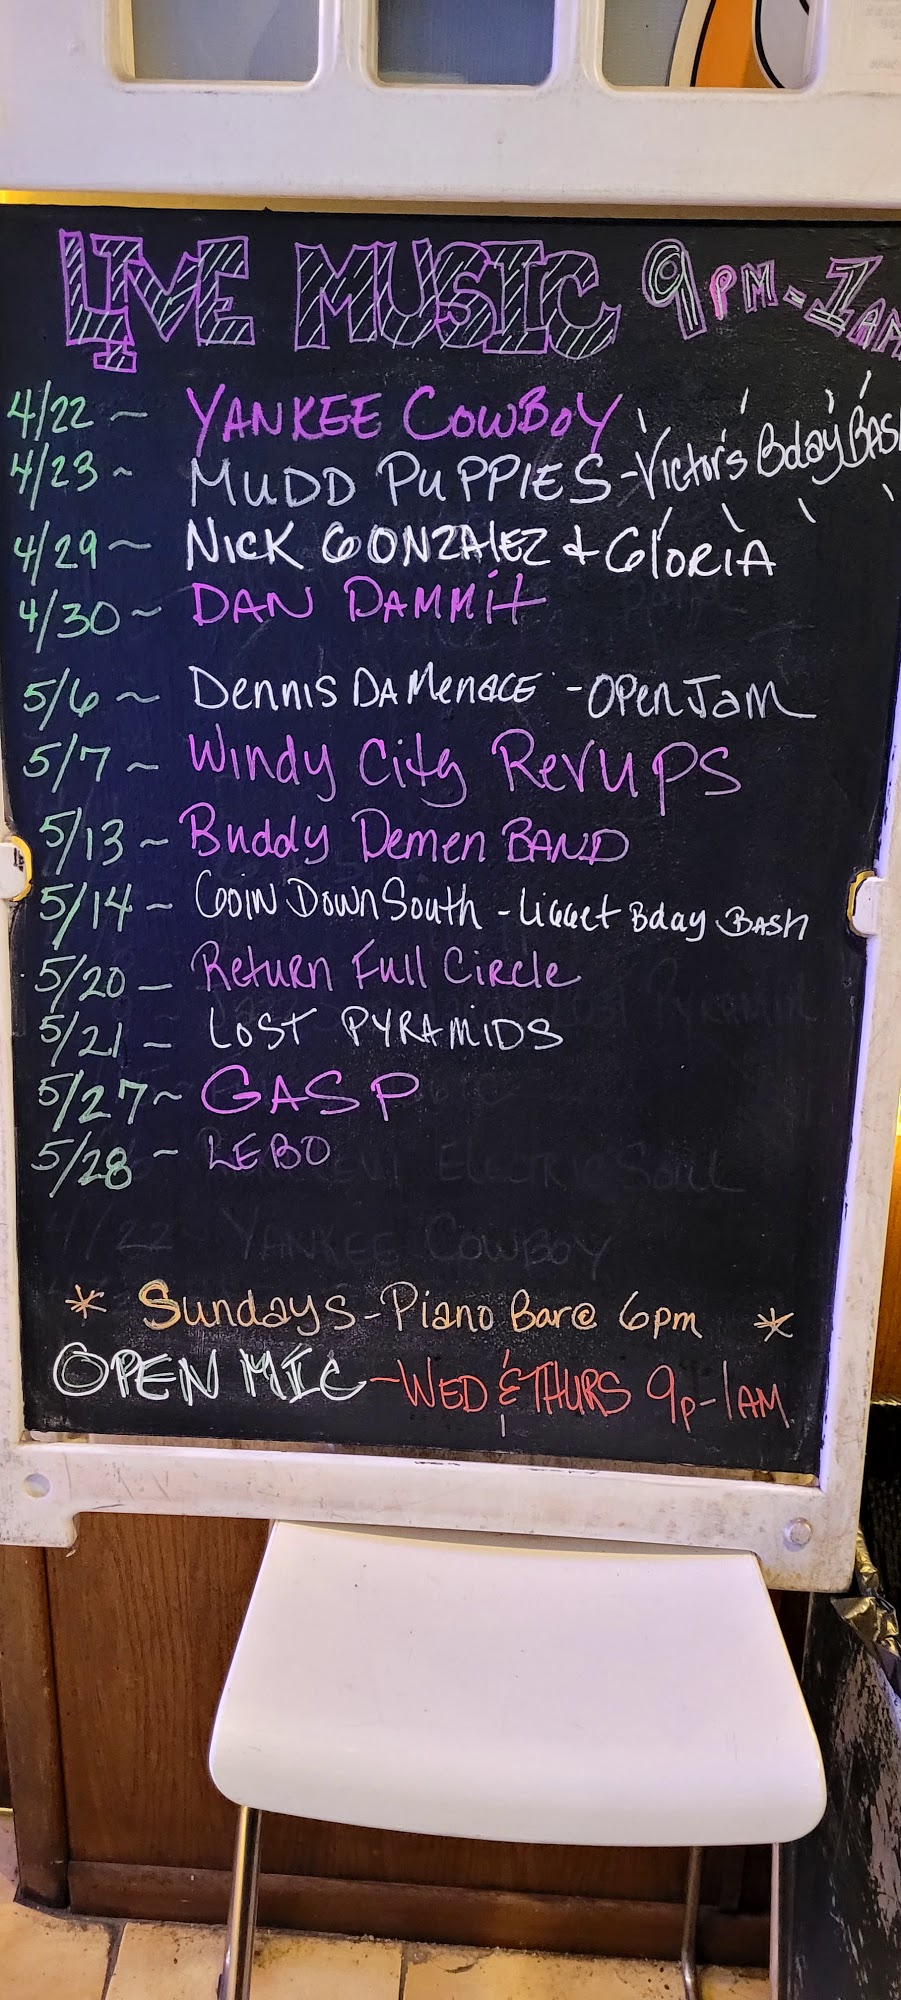 LIVE MUSIC 9PM-1AM
4/22 ~ YANKEE COWBOY
4/23 ~ MUDD PUPPIES - Victor's Bday BASH
4/29 ~ NICK GONZALEZ + GLORIA
4/30 ~ DAN DAMMit
5/6 ~ Dennis DA Menace - OPen JAM
5/7 ~ Windy City RevUPS
5/13 ~ Buddy Demen BAND
5/14 ~ Goin Down South - Ligget Bday BASH
5/20 - Return Full Circle
5/21 - LOST PYRAMIDS
5/27 ~ GASP
5/28 ~ LEBO
ELECTRIC SOUL
4/22 ~ YANKEE COWBOY
* Sundays - Piano Bar @ 6pm *
OPEN MIC - WED & THURS 9p-1AM